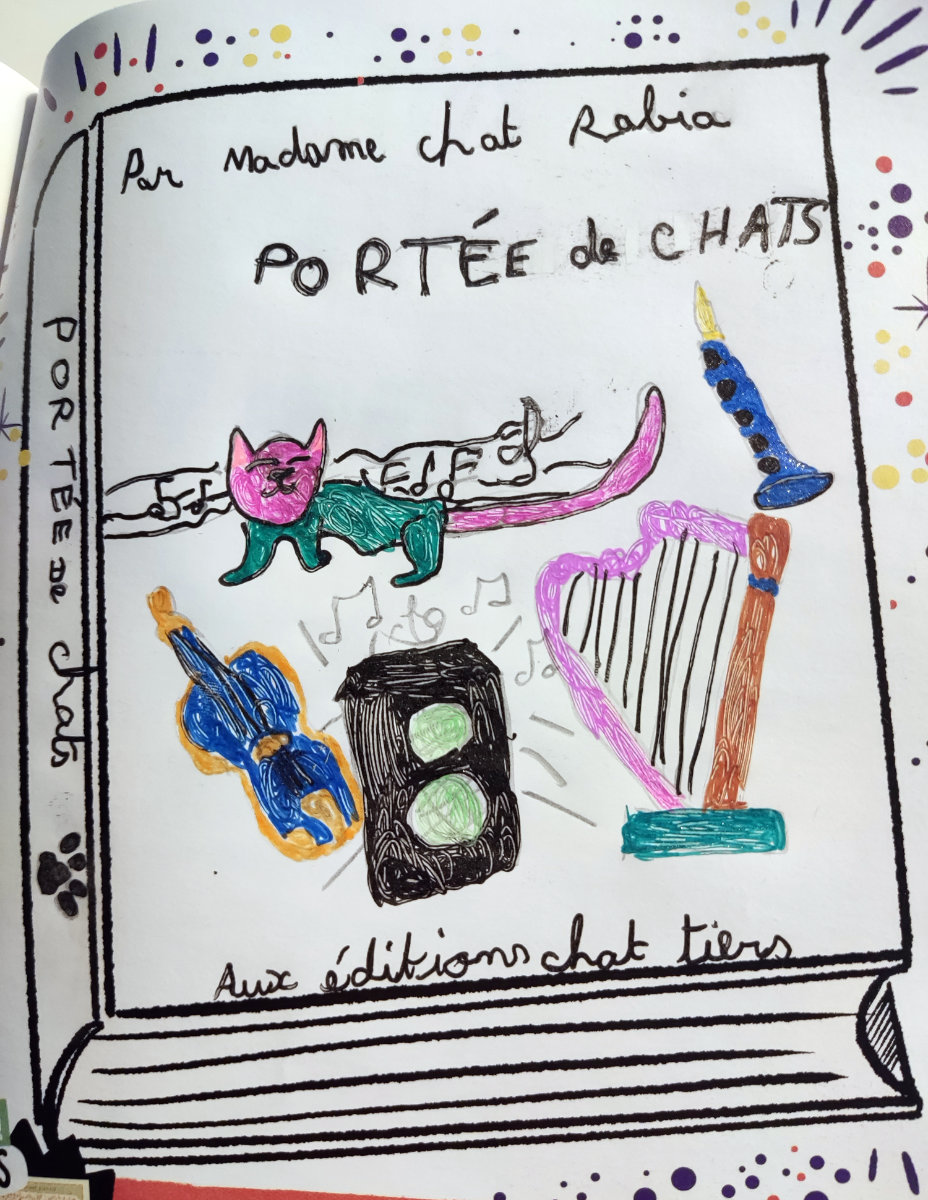 Par Madame chat Rabia
PORTÉE de CHATS
PORTÉE DE chats
Aux éditions chat tiers
S